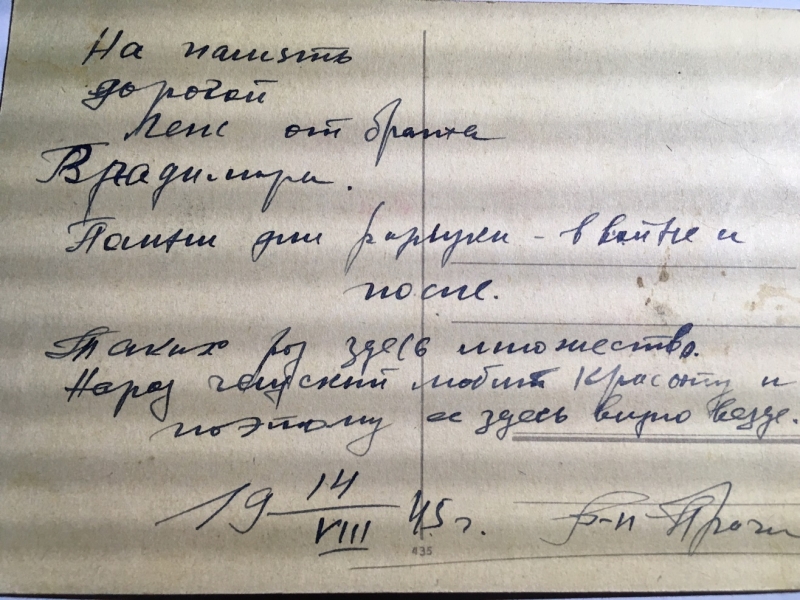 На память
дорогой
Лене от брата
Владимира.
Помни дни разлуки - в войне и
после.
Таких роз здесь множество.
Народ чешский любит красоту и
поэтому её здесь видно везде.
19 14/VIII 45 г. Б-п-Прага
435